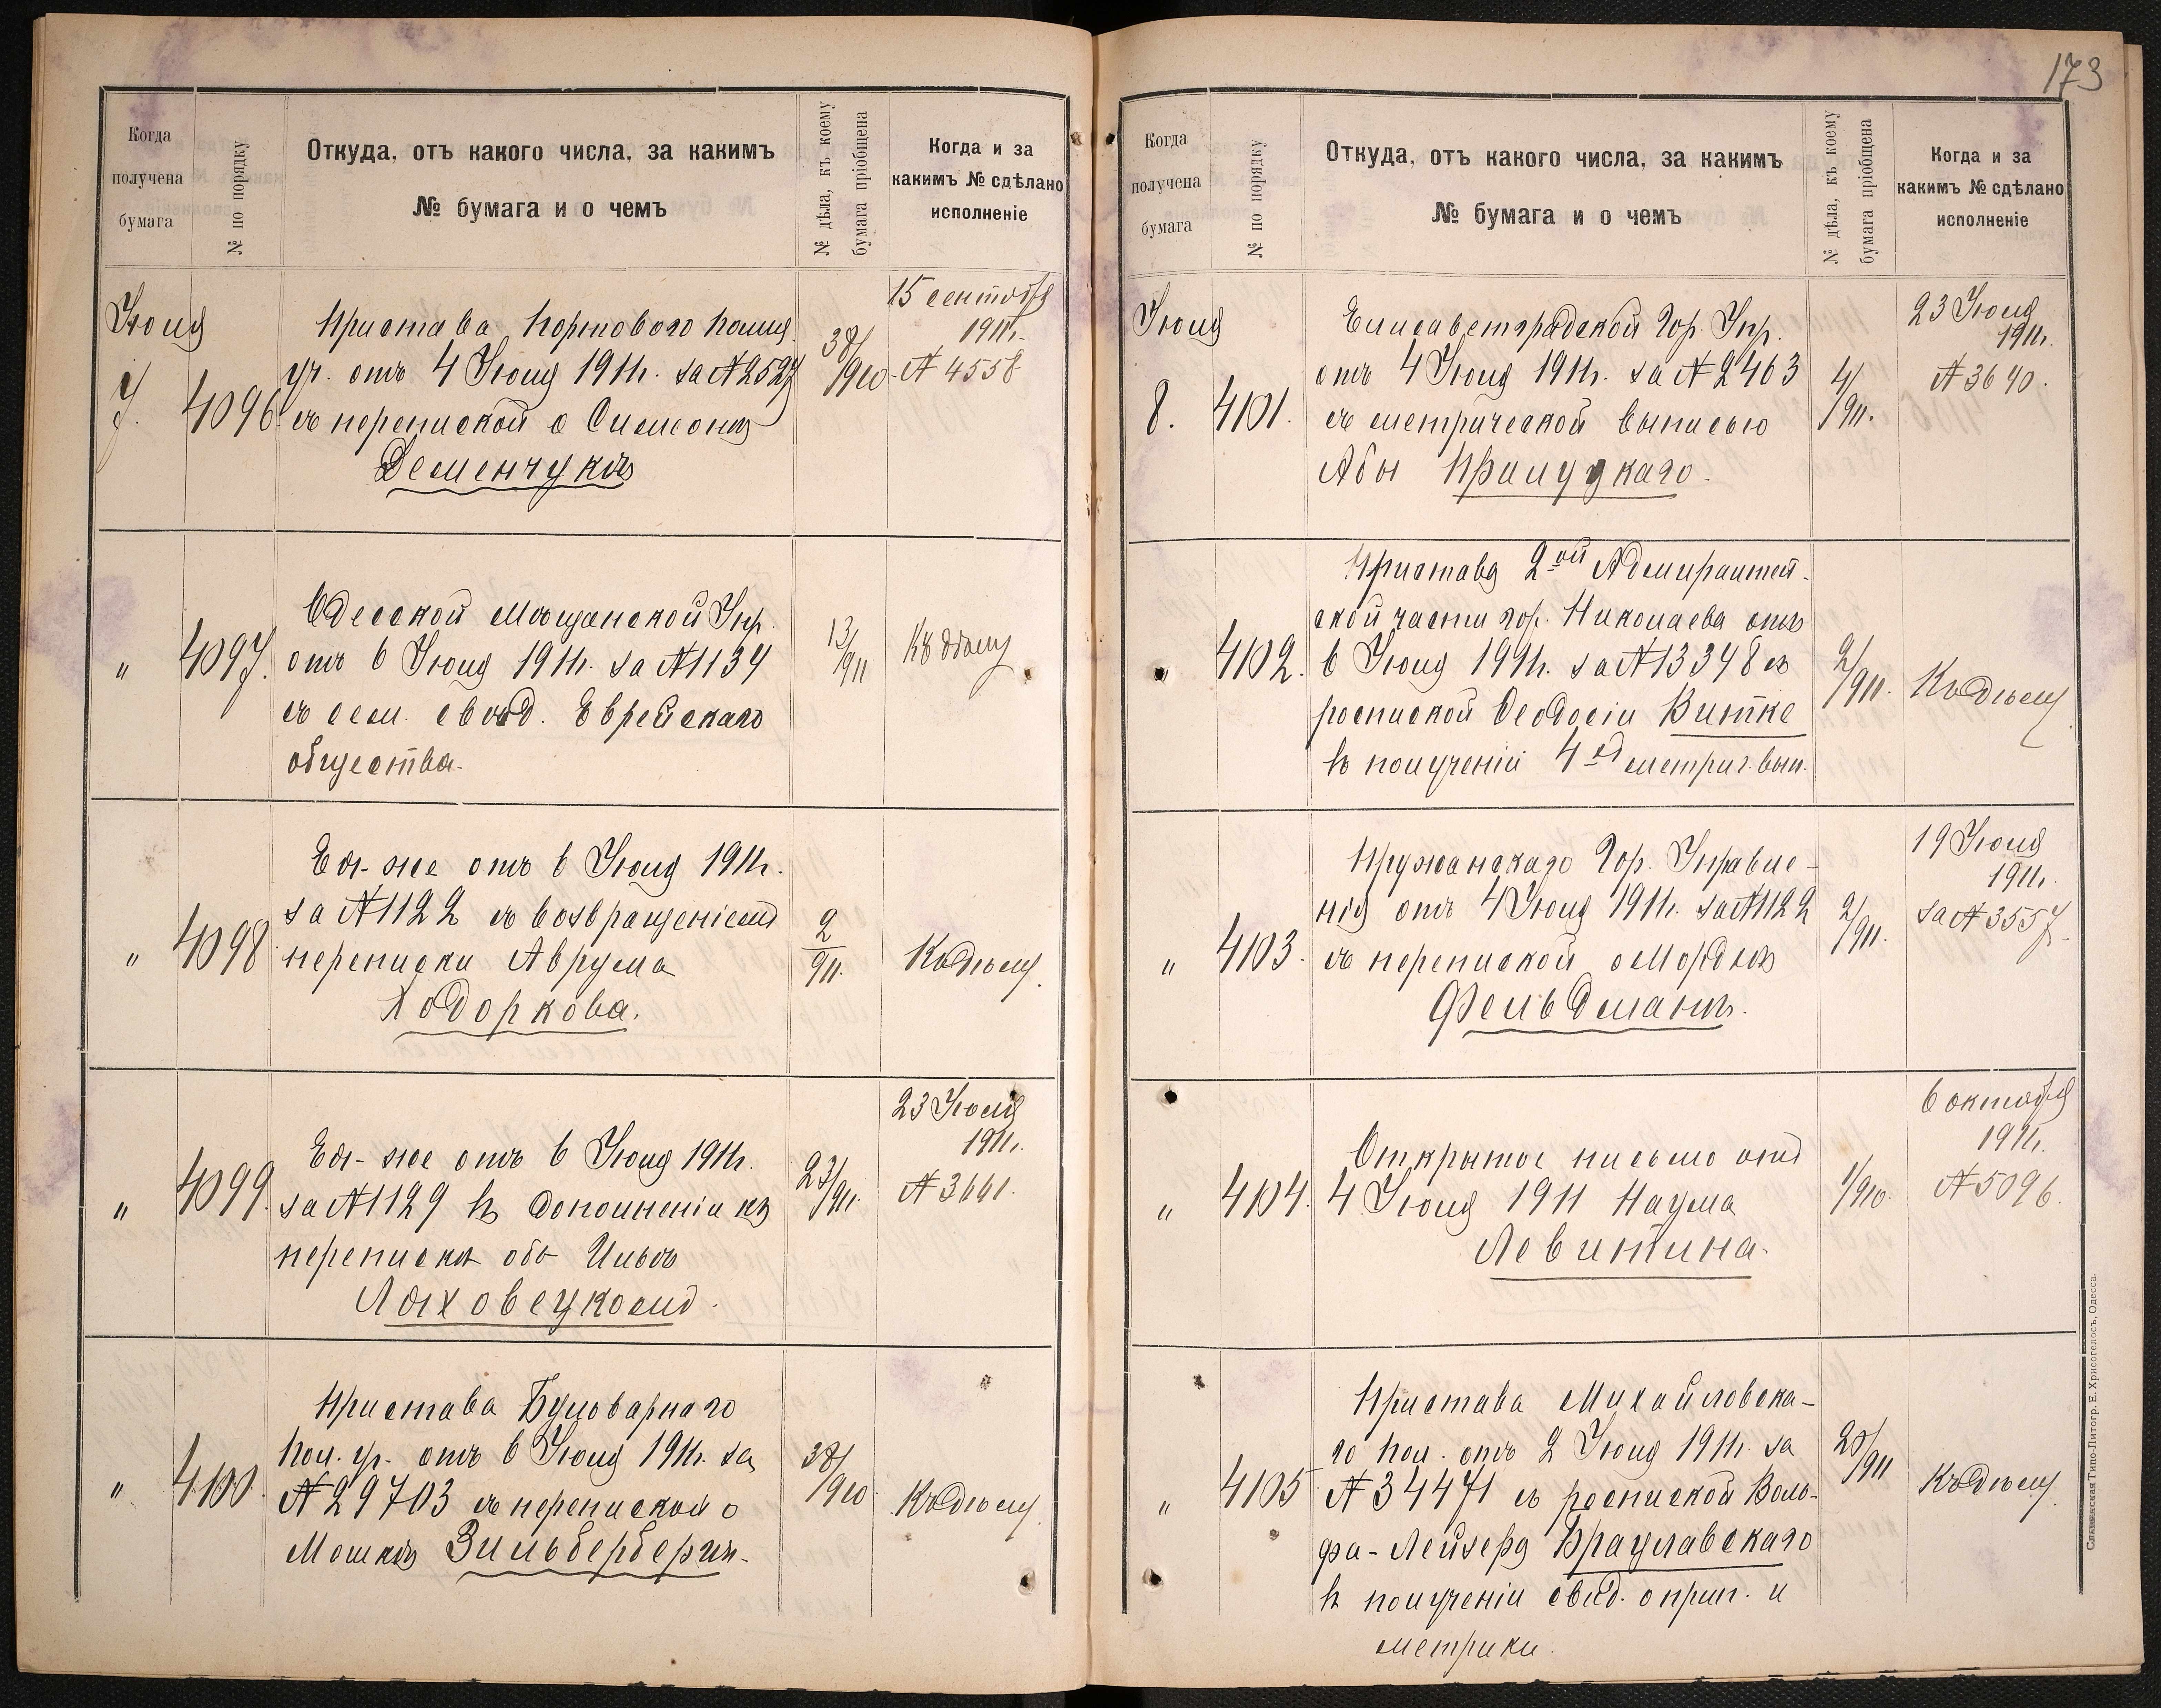 173
Когда
получена
бумага
№ по порядку
Откуда, отъ какого числа, за какимъ
№ бумага и о чемъ
№ дѣла, къ коему
бумага пріобщена
Когда и за
какимъ № сдѣлано
исполненіе
Іюня
7.
4096.
Пристава Портового полиц.
уч. отъ 4 Іюня 1911г. за № 2527
съ перепиской о Симеонѣ
Деменчукѣ
38/1910
15 сентября
1911г.
№ 4558
"
4097.
Одесской Мѣщанской Упр.
отъ 6 Іюня 1911г. за № 1134
съ сем. свѣд. Еврейскаго
общества.
13/911
Къ дѣлу
"
4098
Ея-же отъ 6 Іюня 1911г.
за № 1122 съ возвращеніемъ
переписки Аврума
Ходоркова.
2/911.
Къ дѣлу.
"
4099.
Ея-же отъ 6 Іюня 1911г.
за № 1129 въ дополненіи къ
перепискѣ объ Ильѣ
Ляховецкомъ.
23/911.
23 Іюня
1911г.
№ 3641.
"
4100.
Пристава Бульварнаго
пол. уч. отъ 6 Іюня 1911г. за
№ 29703 съ перепиской о
Мошкѣ Зильбербергѣ.
38/1910
Къ дѣлу.
Когда
получена
бумага
№ по порядку
Откуда, отъ какого числа, за какимъ
№ бумага и о чемъ
№ дѣла, къ коему
бумага пріобщена
Когда и за
какимъ № сдѣлано
исполненіе
Іюня
8.
4101.
Елисаветградской Гор. Упр.
отъ 4 Іюня 1911г. за № 2463
съ метрической выписью
Абы Прилуцкаго.
4/911.
23 Іюня
1911г.
№ 3640.
"
4102.
Пристава 2ой Адмиралтей-
ской части гор. Николаева отъ
6 Іюня 1911г. за № 13348 съ
роспиской Ѳеодосіи Витке
въ полученіи 4хъ метрич. вып.
2/911.
Къ дѣлу.
"
4103.
Пружанскаго Гор. Управле-
нія отъ 4 Іюня 1911г. за № 1122
съ перепиской о Мордкѣ
Фельдманъ.
2/911.
19 Іюня
1911г.
за № 3557.
"
4104.
Открытое письмо отъ
4 Іюня 1911 Наума
Левитина.
1/910.
6 октября
1911г.
№ 5096.
"
4105
Пристава Михайловска-
го пол. отъ 2 Іюня 1911г. за
№ 34471 съ роспиской Воль-
фа-Лейзера Брацлавскаго
въ полученіи свид. о прип. и
метрики.
20/911
Къ дѣлу.
Славянская Типо-Литогр. Е. Хрисогелосъ, Одесса.